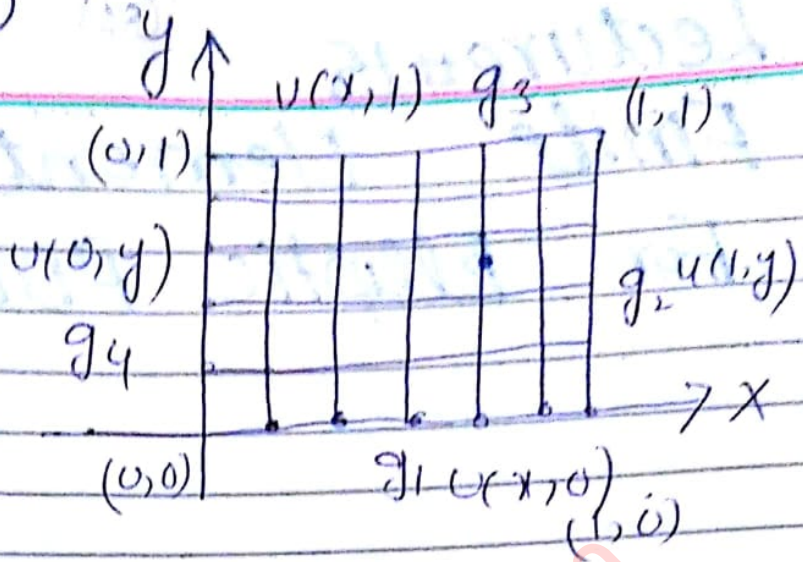 y
u(x,1) g3 (1,1)
(0,1)
u(0,y)
g2 u(1,y)
g4
x
(0,0) g1 u(x,0)
(1,0)